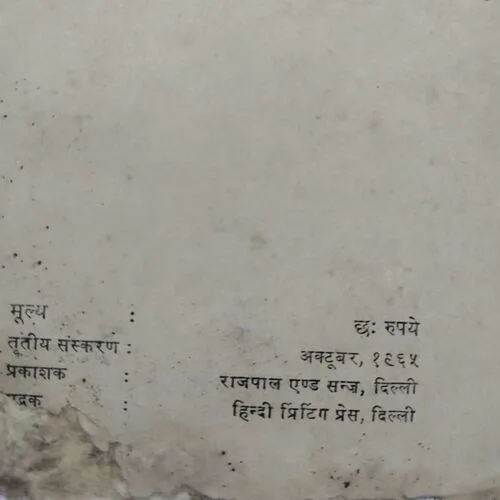 मूल्य : छः रुपये
तृतीय संस्करण : अक्टूबर, १९६५
प्रकाशक : राजपाल एण्ड सन्ज़, दिल्ली
: हिन्दी प्रिंटिंग प्रेस, दिल्ली